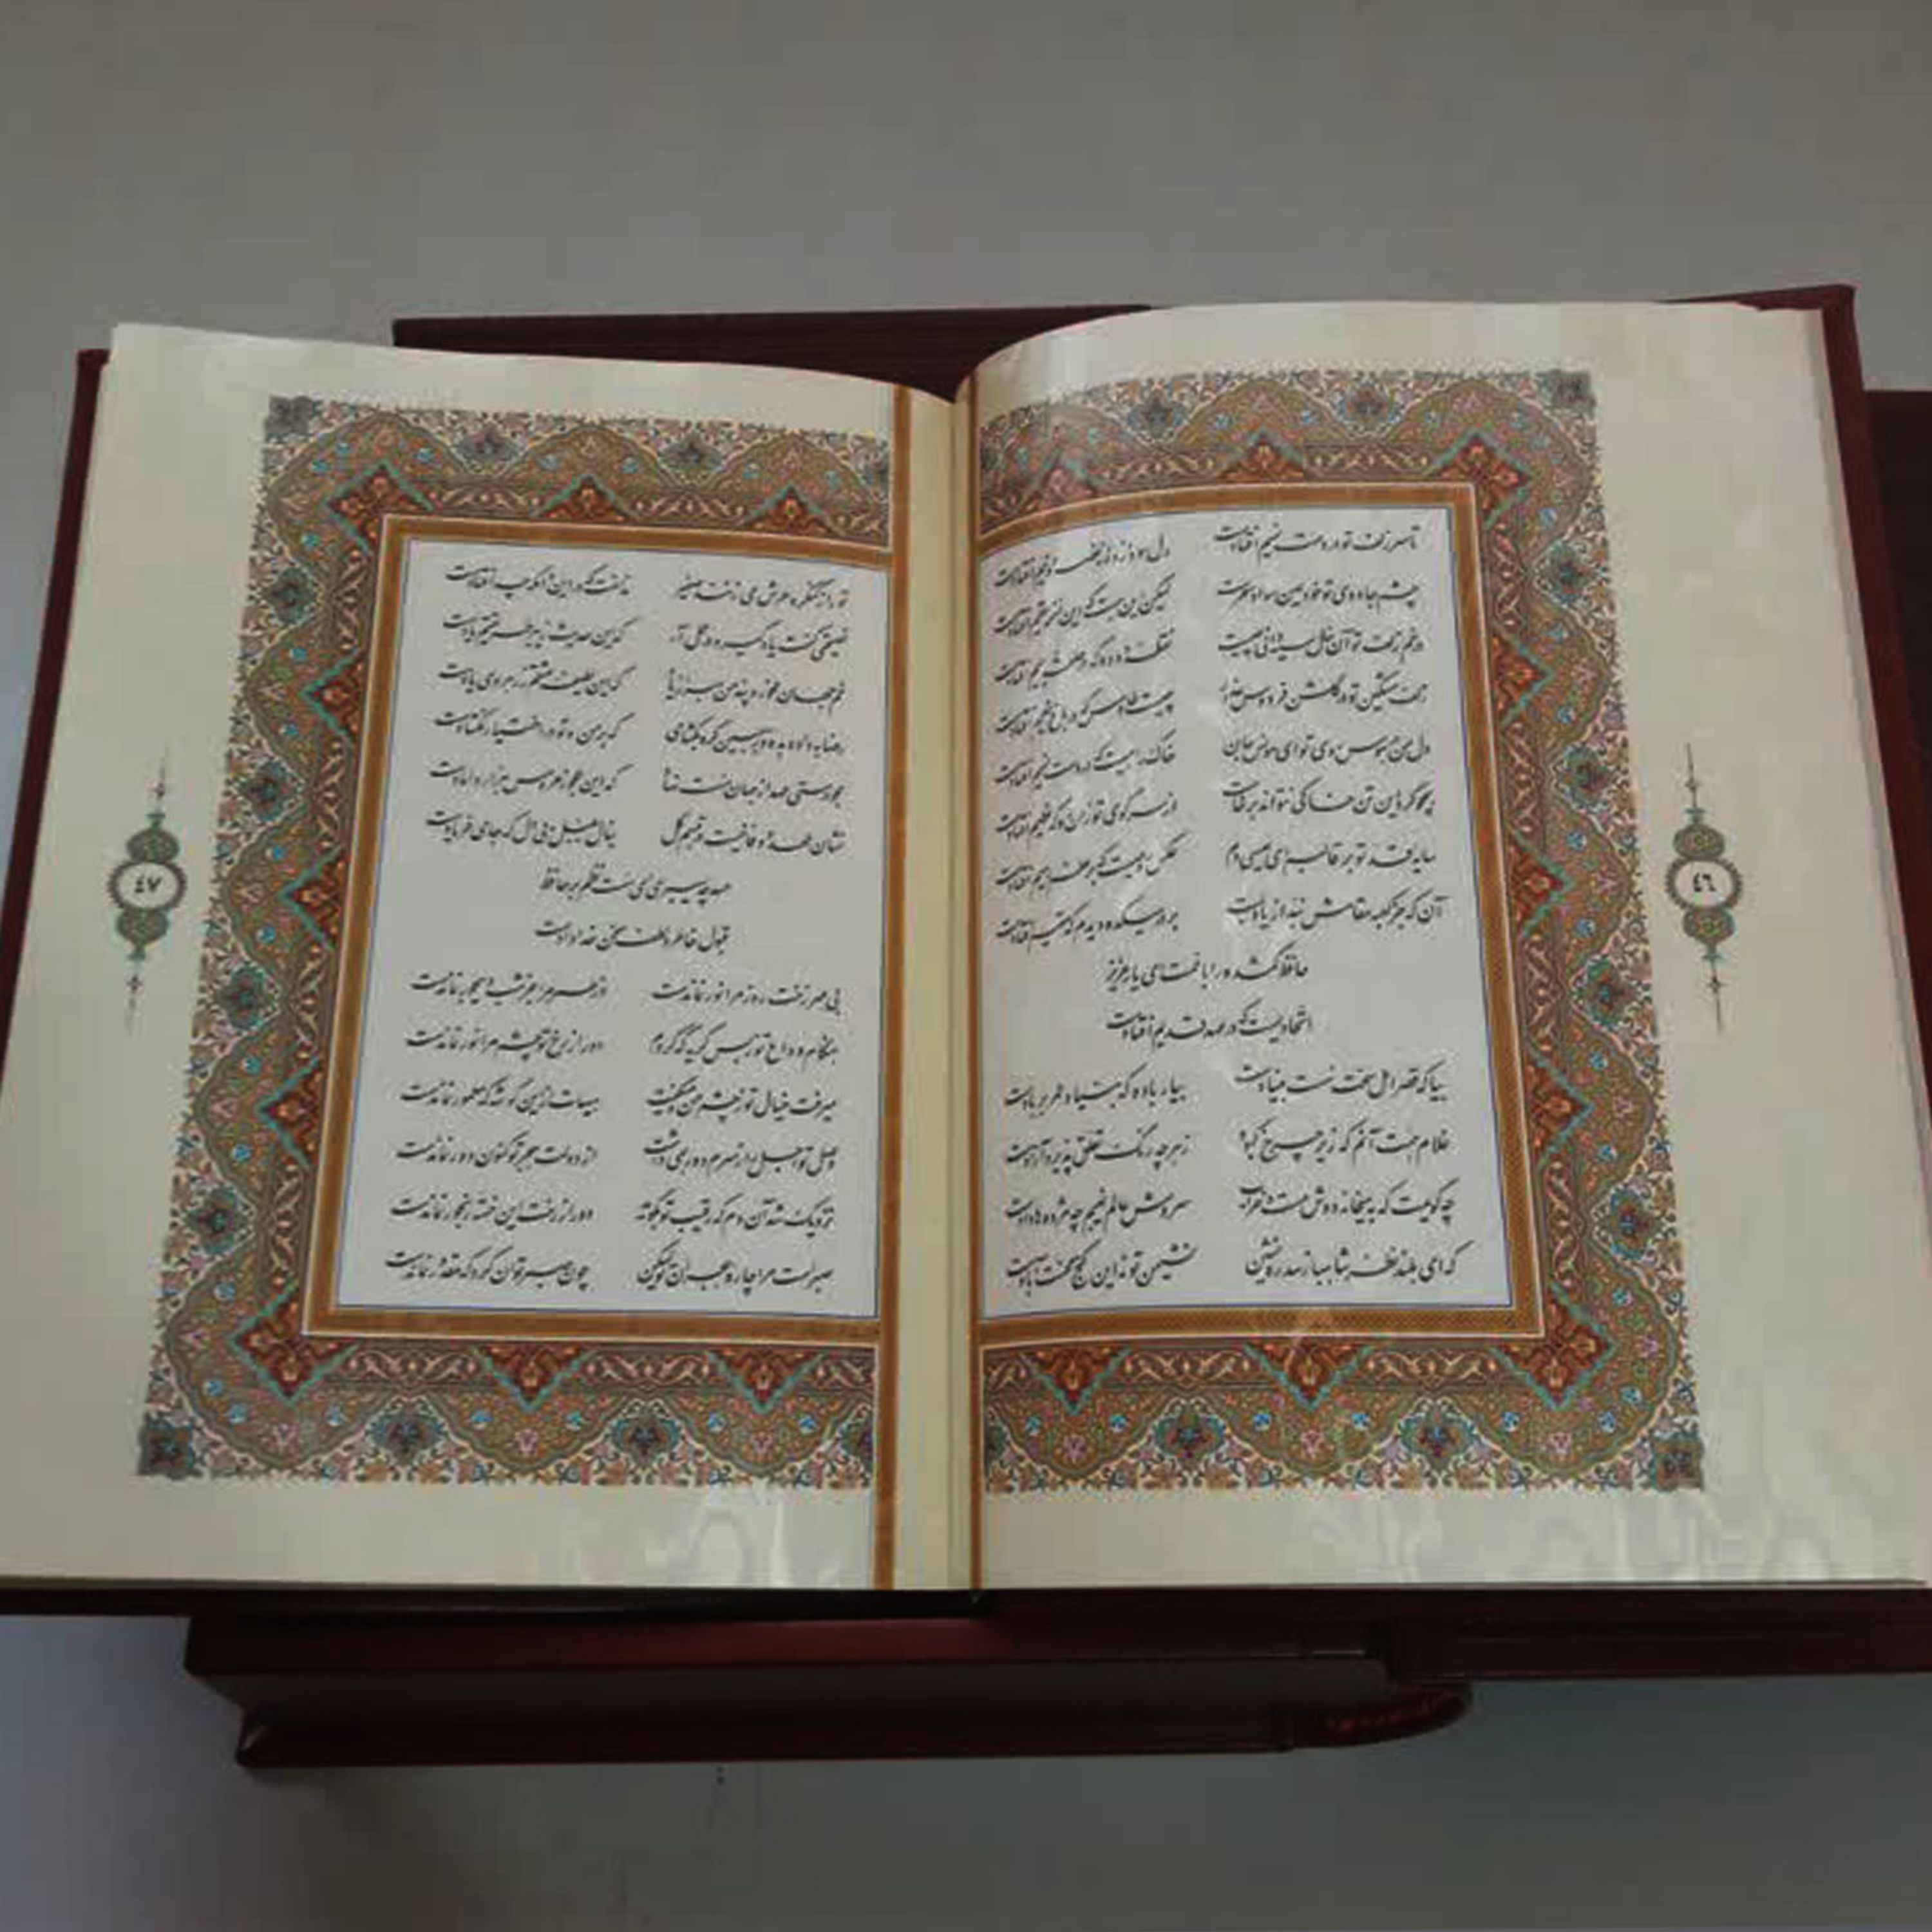 تا سر زلف تو در دست نسیم افتادست دل سودازده از غصه دو نیم افتادست
چشم جادوی تو خود عین سواد سحرست لیکن این هست که این نسخه سقیم افتادست
در خم زلف تو آن خال سیه دانی چیست نقطه دوده که در حلقه جیم افتادست
زلف مشکین تو در گلشن فردوس عذار چیست طاوس که در باغ نعیم افتادست
دل من در هوس روی تو ای مونس جان خاک راهیست که در دست نسیم افتادست
همچو گرد این تن خاکی نتواند برخاست از سر کوی تو زان رو که عظیم افتادست
سایه قد تو بر قالبم ای عیسی دم عکس روحیست که بر عظم رمیم افتادست
آن که جز کعبه مقامش نبد از یاد لبت بر در میکده دیدم که مقیم افتادست
حافظ گمشده را با غمت ای یار عزیز
اتحادیست که در عهد قدیم افتادست
بیا که قصر امل سخت سست بنیادست بیار باده که بنیاد عمر بر بادست
غلام همت آنم که زیر چرخ کبود ز هر چه رنگ تعلق پذیرد آزادست
چه گویمت که به میخانه دوش مست و خراب سروش عالم غیبم چه مژده‌ها دادست
که ای بلند نظر شاهباز سدره نشین نشیمن تو نه این کنج محنت آبادست
٤٦
تو را ز کنگره عرش می زنند صفیر ندانمت که در این دامگه چه افتادست
نصیحتی کنمت یاد گیر و در عمل آر که این حدیث ز پیر طریقتم یادست
غم جهان مخور و پند من مبر از یاد که این لطیفه عشقم ز رهروی یادست
رضا به داده بده وز جبین گره بگشای که بر من و تو در اختیار نگشادست
مجو درستی عهد از جهان سست نهاد که این عجوز عروس هزار دامادست
نشان عهد و وفا نیست در تبسم گل بنال بلبل بی دل که جای فریادست
حسد چه می بری ای سست نظم بر حافظ
قبول خاطر و لطف سخن خدادادست
بی مهر رخت روز مرا نور نماندست وز عمر مرا جز شب دیجور نماندست
هنگام وداع تو ز بس گریه که کردم دور از رخ تو چشم مرا نور نماندست
میرفت خیال تو ز چشم من و میگفت هیهات از این گوشه که معمور نماندست
وصل تو اجل را ز سرم دور همی داشت از دولت هجر تو کنون دور نماندست
نزدیک شد آن دم که رقیب تو بگوید دور از رخت این خسته رنجور نماندست
صبرست مرا چاره هجران تو لیکن چون صبر توان کرد که مقدور نماندست
٤٧